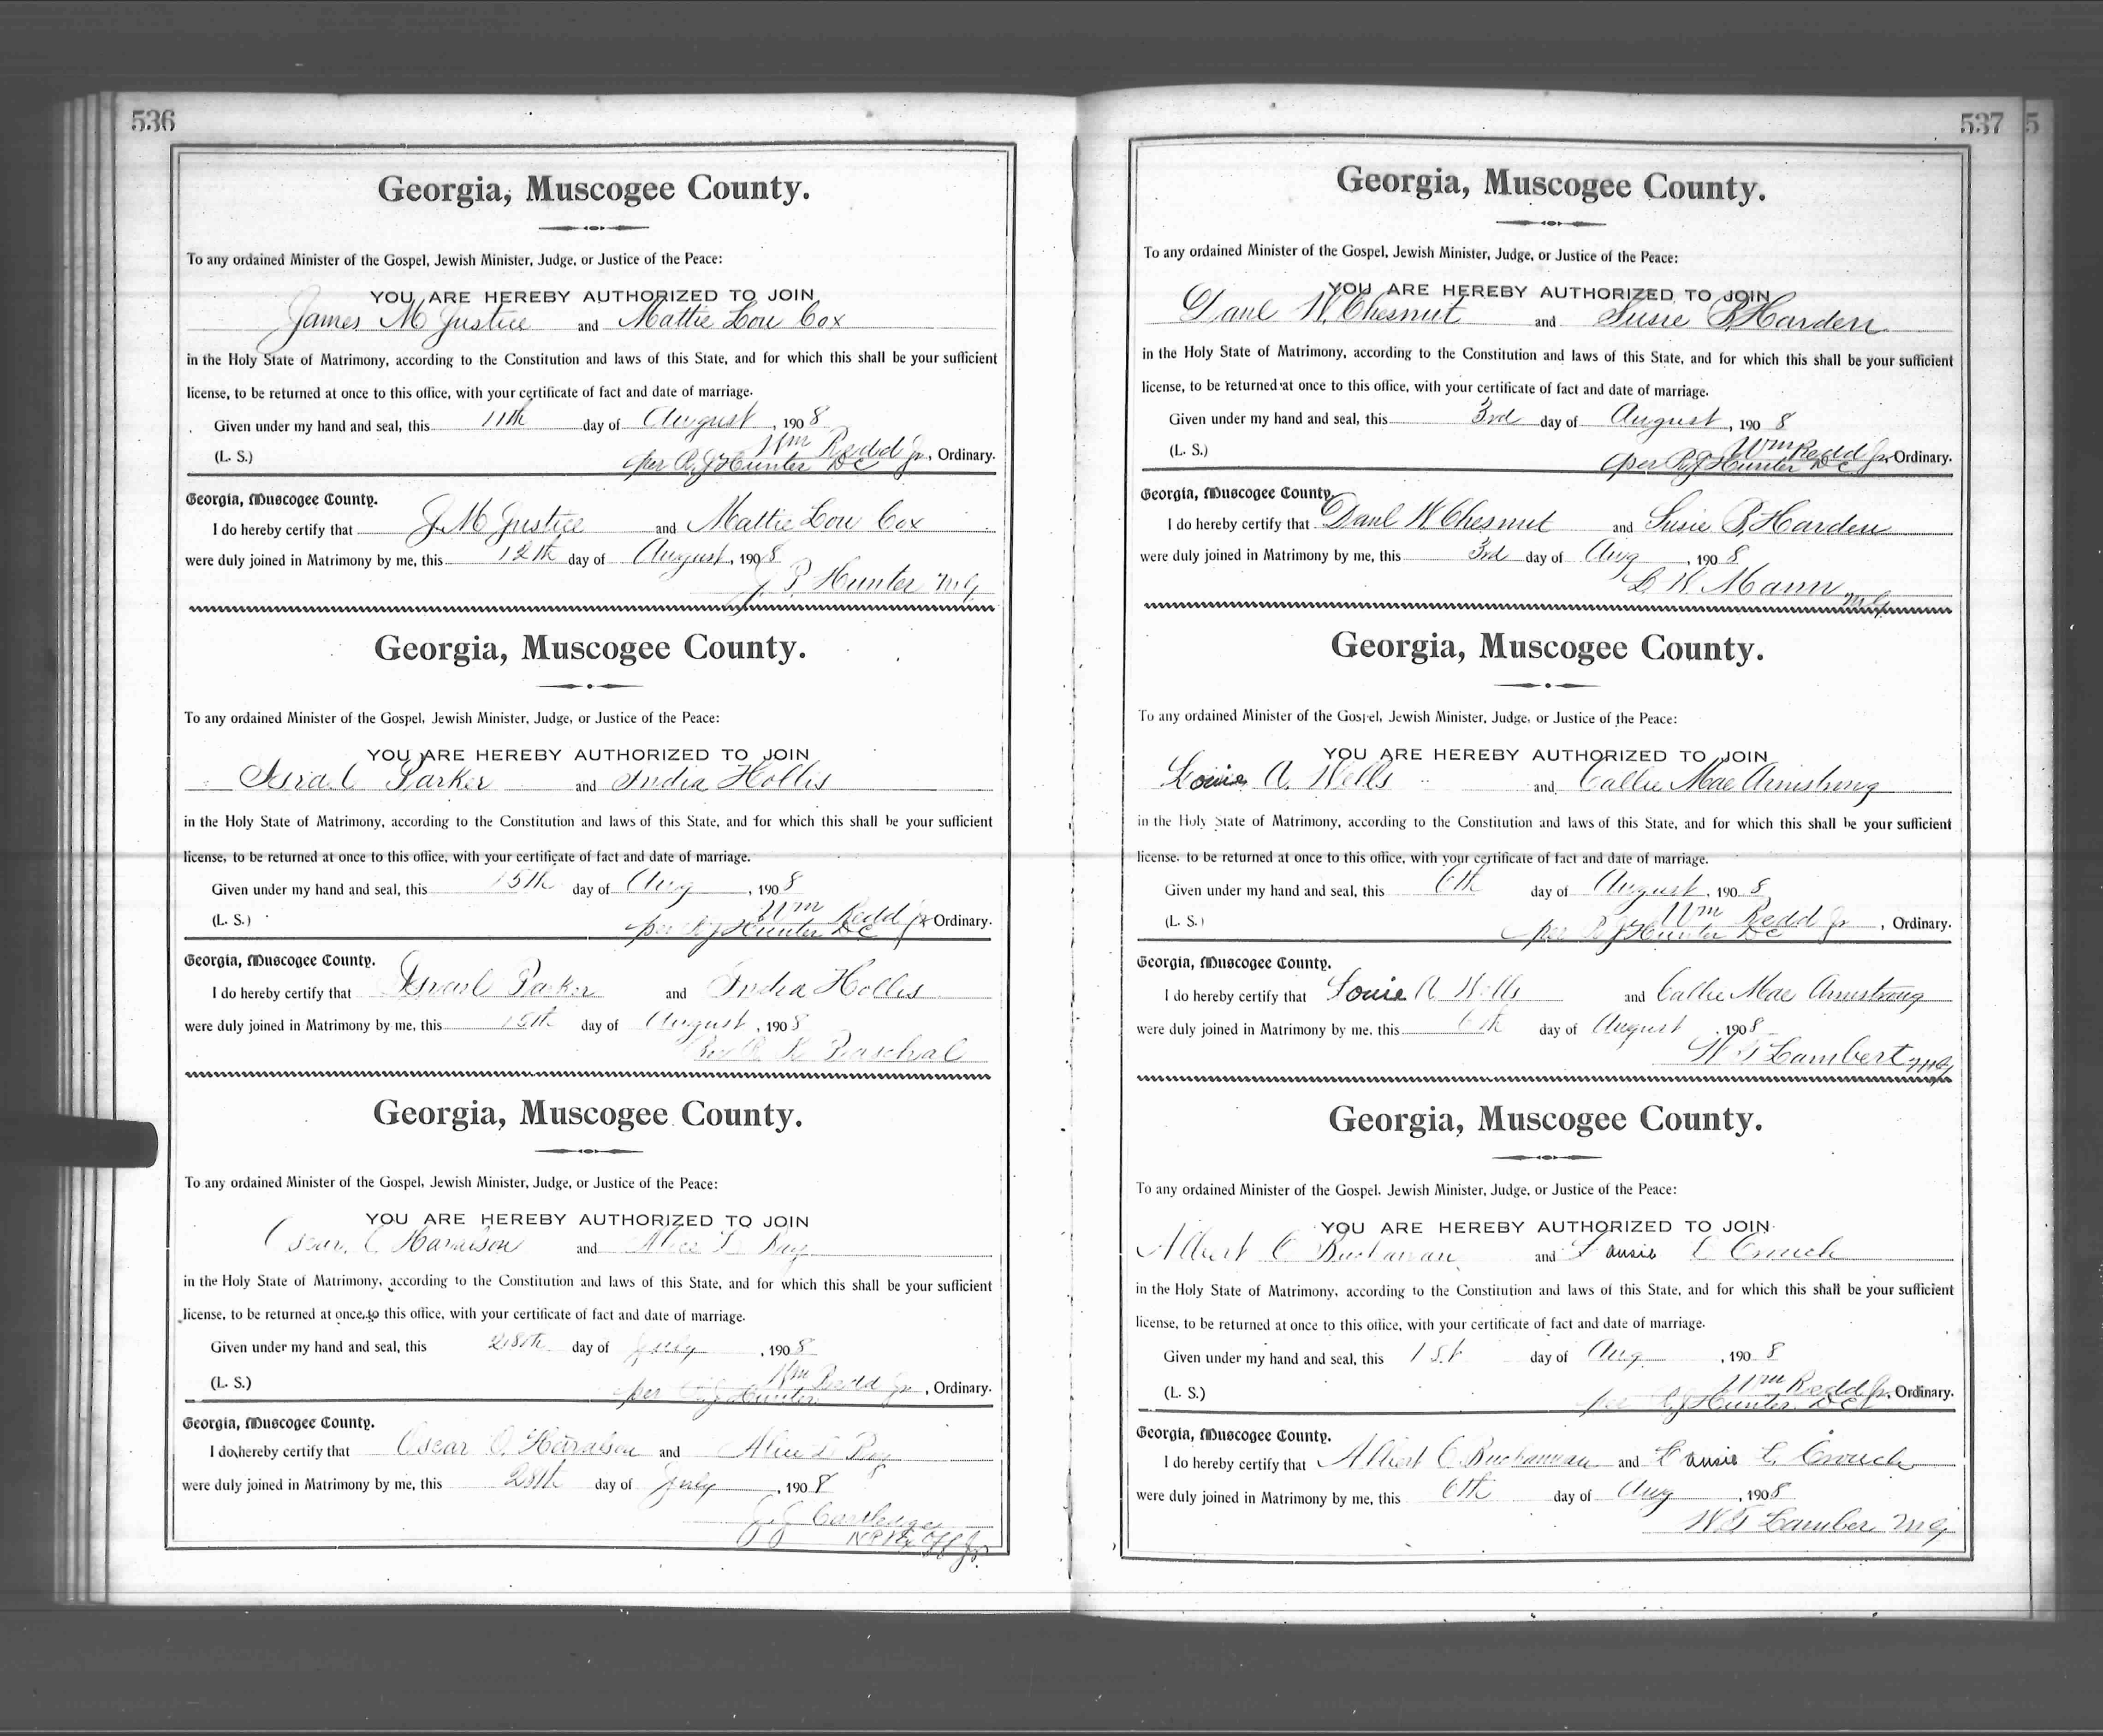 536
Georgia, Muscogee County.
To any ordained Minister of the Gospel, Jewish Minister, Judge, or Justice of the Peace:
YOU ARE HEREBY AUTHORIZED TO JOIN
James M Justice and Mattie Lou Cox
in the Holy State of Matrimony, according to the Constitution and laws of this State, and for which this shall be your sufficient
license, to be returned at once to this office, with your certificate of fact and date of marriage.
Given under my hand and seal, this 11th day of August, 1908
(L. S.) Wm Redd Jr, Ordinary.
per R J Hunter DC
Georgia, Muscogee County.
I do hereby certify that J M Justice and Mattie Lou Cox
were duly joined in Matrimony by me, this 12th day of August, 1908
J P Hunter MG
Georgia, Muscogee County.
To any ordained Minister of the Gospel, Jewish Minister, Judge, or Justice of the Peace:
YOU ARE HEREBY AUTHORIZED TO JOIN
Israel Parker and India Hollis
in the Holy State of Matrimony, according to the Constitution and laws of this State, and for which this shall be your sufficient
license, to be returned at once to this office, with your certificate of fact and date of marriage.
Given under my hand and seal, this 15th day of Aug, 1908
(L. S.) Wm Redd Jr Ordinary.
per R J Hunter DC
Georgia, Muscogee County.
I do hereby certify that Israel Parker and India Hollis
were duly joined in Matrimony by me, this 15th day of August, 1908
R Paschal
Georgia, Muscogee County.
To any ordained Minister of the Gospel, Jewish Minister, Judge, or Justice of the Peace:
YOU ARE HEREBY AUTHORIZED TO JOIN
Oscar and Alice L Ray
in the Holy State of Matrimony, according to the Constitution and laws of this State, and for which this shall be your sufficient
license, to be returned at once to this office, with your certificate of fact and date of marriage.
Given under my hand and seal, this 28th day of July, 1908
(L. S.) Wm Redd Jr, Ordinary.
per R J Hunter
Georgia, Muscogee County.
I do hereby certify that Oscar O Haralson and Alice L Ray
were duly joined in Matrimony by me, this 28th day of July, 1908
J J Cartledge
NP & Ex Off JP
537 5
Georgia, Muscogee County.
To any ordained Minister of the Gospel, Jewish Minister, Judge, or Justice of the Peace:
YOU ARE HEREBY AUTHORIZED TO JOIN
Danl W Chesnut and Susie P Harden
in the Holy State of Matrimony, according to the Constitution and laws of this State, and for which this shall be your sufficient
license, to be returned at once to this office, with your certificate of fact and date of marriage.
Given under my hand and seal, this 3rd day of August, 1908
(L. S.) Wm Redd Jr Ordinary.
per R J Hunter DC
Georgia, Muscogee County.
I do hereby certify that Danl W Chesnut and Susie P Harden
were duly joined in Matrimony by me, this 3rd day of Aug, 1908
L W Mann MG
Georgia, Muscogee County.
To any ordained Minister of the Gospel, Jewish Minister, Judge, or Justice of the Peace:
YOU ARE HEREBY AUTHORIZED TO JOIN
Louie A. Wells and Callie Mae Armstrong
in the Holy State of Matrimony, according to the Constitution and laws of this State, and for which this shall be your sufficient
license, to be returned at once to this office, with your certificate of fact and date of marriage.
Given under my hand and seal, this 6th day of August, 1908
(L. S.) Wm Redd Jr, Ordinary.
per R J Hunter DC
Georgia, Muscogee County.
I do hereby certify that Louie A Wells and Callie Mae Armstrong
were duly joined in Matrimony by me, this 6th day of August, 1908
W T Lambert MG
Georgia, Muscogee County.
To any ordained Minister of the Gospel, Jewish Minister, Judge, or Justice of the Peace:
YOU ARE HEREBY AUTHORIZED TO JOIN
Albert C Buchanan and Lousie L Crouch
in the Holy State of Matrimony, according to the Constitution and laws of this State, and for which this shall be your sufficient
license, to be returned at once to this office, with your certificate of fact and date of marriage.
Given under my hand and seal, this 1st day of Aug, 1908
(L. S.) Wm Redd Jr, Ordinary.
per R J Hunter DC
Georgia, Muscogee County.
I do hereby certify that Albert C Buchannan and Lousie L Crouch
were duly joined in Matrimony by me, this 6th day of Aug, 1908
W T Lamber MG